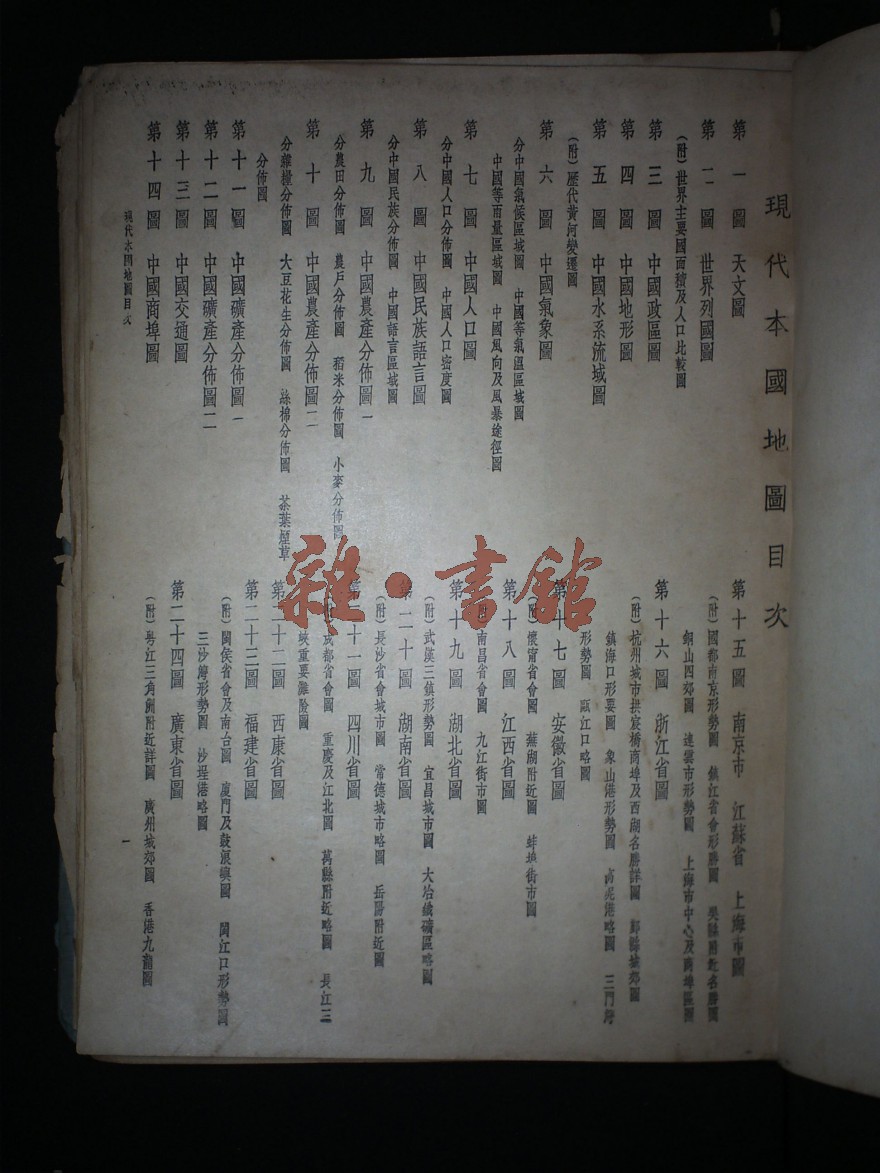 現代本國地圖目次
第一圖 天文圖
第二圖 世界列國圖
(附)世界主要國面積及人口比較圖
第三圖 中國政區圖
第四圖 中國地形圖
第五圖 中國水系流域圖
(附)歷代黃河變遷圖
第六圖 中國氣象圖
分中國氣候區域圖 中國等氣溫區域圖
中國等雨量區域圖 中國風向及風暴途徑圖
第七圖 中國人口圖
分中國人口分佈圖 中國人口密度圖
第八圖 中國民族語言圖
分中國民族分佈圖 中國語言區域圖
第九圖 中國農產分佈圖一
分農田分佈圖 農戶分佈圖 稻米分佈圖 小麥分佈圖
第十圖 中國農產分佈圖二
分雜糧分佈圖 大豆花生分佈圖 絲棉分佈圖 茶葉煙草
分佈圖
第十一圖 中國礦產分佈圖一
第十二圖 中國礦產分佈圖二
第十三圖 中國交通圖
第十四圖 中國商埠圖
現代本國地圖目次
第十五圖 南京市 江蘇省 上海市圖
(附)國都南京形勢圖 鎮江省會形勝圖 吳縣附近名勝圖
銅山四郊圖 連雲市形勢圖 上海市中心及商埠區圖
第十六圖 浙江省圖
(附)杭州城市拱宸橋商埠及西湖名勝詳圖 鄞縣城郊圖
鎮海口形要圖 象山港形勢圖 三門灣
形勢圖 甌江口略圖
第十七圖 安徽省圖
(附)懷甯省會圖 蕪湖附近圖 蚌埠街市圖
第十八圖 江西省圖
(附)南昌省會圖 九江街市圖
第十九圖 湖北省圖
(附)武漢三鎮形勢圖 宜昌城市圖 大冶鐵礦區略圖
第二十圖 湖南省圖
(附)長沙省會城市圖 常德城市略圖 岳陽附近圖
第二十一圖 四川省圖
(附)成都省會圖 重慶及江北圖 萬縣附近略圖 長江三
峽重要灘險圖
第二十二圖 西康省圖
第二十三圖 福建省圖
(附)閩侯省會及南台圖 廈門及鼓浪嶼圖 閩江口形勢圖
三沙灣形勢圖 沙埕港略圖
第二十四圖 廣東省圖
(附)粵江三角洲附近詳圖 廣州城郊圖 香港九龍圖
一
雜·書館